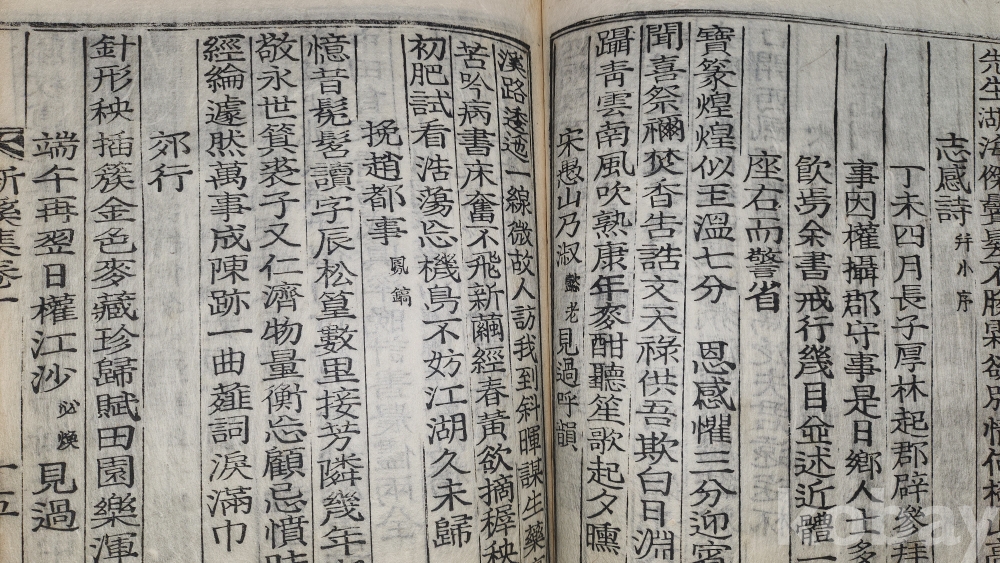 先生湖海
志感詩 幷小序
丁未四月長子厚林起郡辟參拜
事因權攝郡守事是日鄕人士多
飮余書戒行幾日並述近體一
座石而警省
寶篆煌煌似玉溫七分 恩感懼三分迎
聞喜祭禰焚香告誥文天祿供吾欺白日淵
躡靑雲南風吹熟康年麥酣聽笙歌起夕曛
宋愚山乃淑 懿老 見過呼韻
溪路逶迤一線微故人訪我到斜暉謀生藥
苦吟病書床奮不飛新繭經春黃欲摘穉秧
初肥試看浩蕩忘機鳥不妨江湖久未歸
挽趙都事 鳳鎬
憶昔髧髦讀字辰松篁數里接芳隣幾年
敬永世箕裘子又仁濟物量衡忘顧忌憤時
經綸遽然萬事成陳跡一曲薤詞淚滿巾
郊行
針形秧揷簇金色麥藏珍歸賦田園樂渾
端午再翌日權江沙 必煥 見過
新溪集卷一 十五